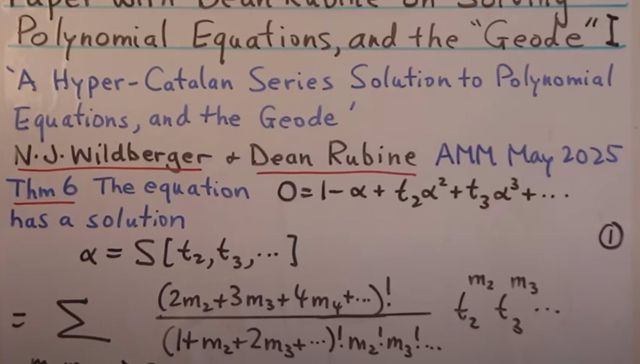 Paper with Dean Rubine on Solving
Polynomial Equations, and the "Geode" I
'A Hyper-Catalan Series Solution to Polynomial
Equations, and the Geode'
N.J. Wildberger & Dean Rubine AMM May 2025
Thm 6 The equation 0=1-α+t₂α²+t₃α³+...
has a solution
①
α = S[t₂,t₃,...]
= Σ (2m₂+3m₃+4m₄+...)! / (1+m₂+2m₃+...)!m₂!m₃!... t₂^m₂ t₃^m₃ ...